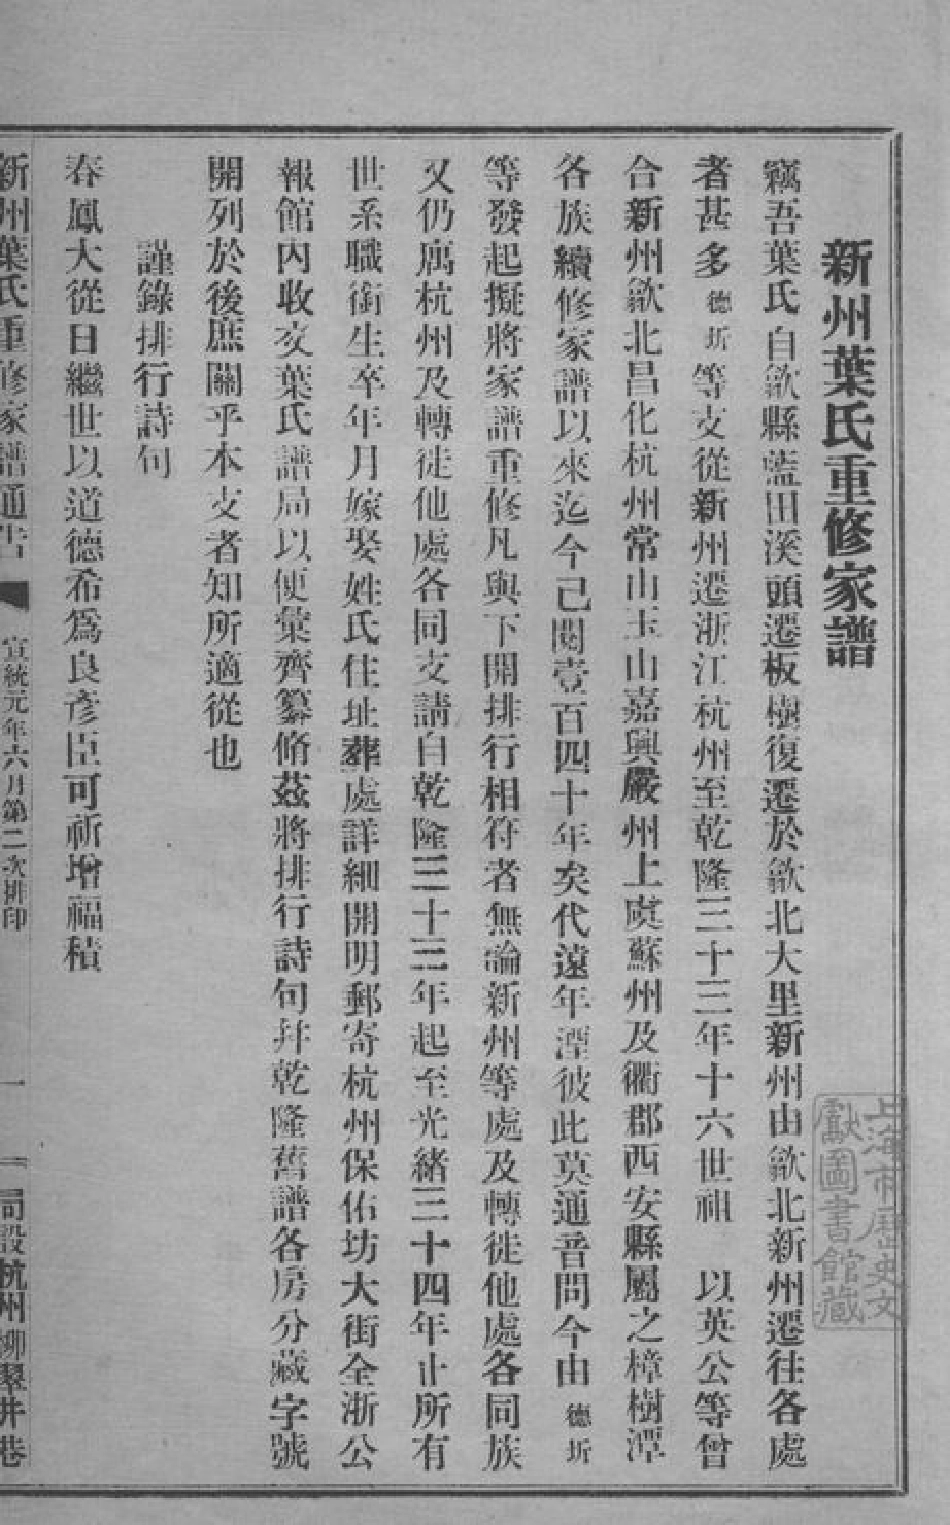 新州葉氏重修家譜
竊吾葉氏自歙縣藍田溪頭遷板樹復遷於歙北大里新州由歙北新州遷往各處
者甚多德圻等支從新州遷浙江杭州至乾隆三十三年十六世祖 以英公等曾
合新州歙北昌化杭州常山玉山嘉興嚴州上虞蘇州及衢郡西安縣屬之樟樹潭
各族續修家譜以來迄今己閱壹百四十年矣代遠年湮彼此莫通音問今由德圻
等發起擬將家譜重修凡與下開排行相符者無論新州等處及轉徙他處各同族
又仍寓杭州及轉徙他處各同支請自乾隆三十三年起至光緒三十四年止所有
世系職銜生卒年月嫁娶姓氏住址葬處詳細開明郵寄杭州保佑坊大街全浙公
報館內收交葉氏譜局以便彙齊纂脩茲將排行詩句并乾隆舊譜各房分藏字號
開列於後庶關乎本支者知所適從也
謹錄排行詩句
春鳳大從日繼世以道德希爲良彥臣可祈增福積
新州葉氏重修家譜通告 宣統元年六月第二次排印 一 局設杭州柳翠井巷
上海市歷史文
獻圖書館藏